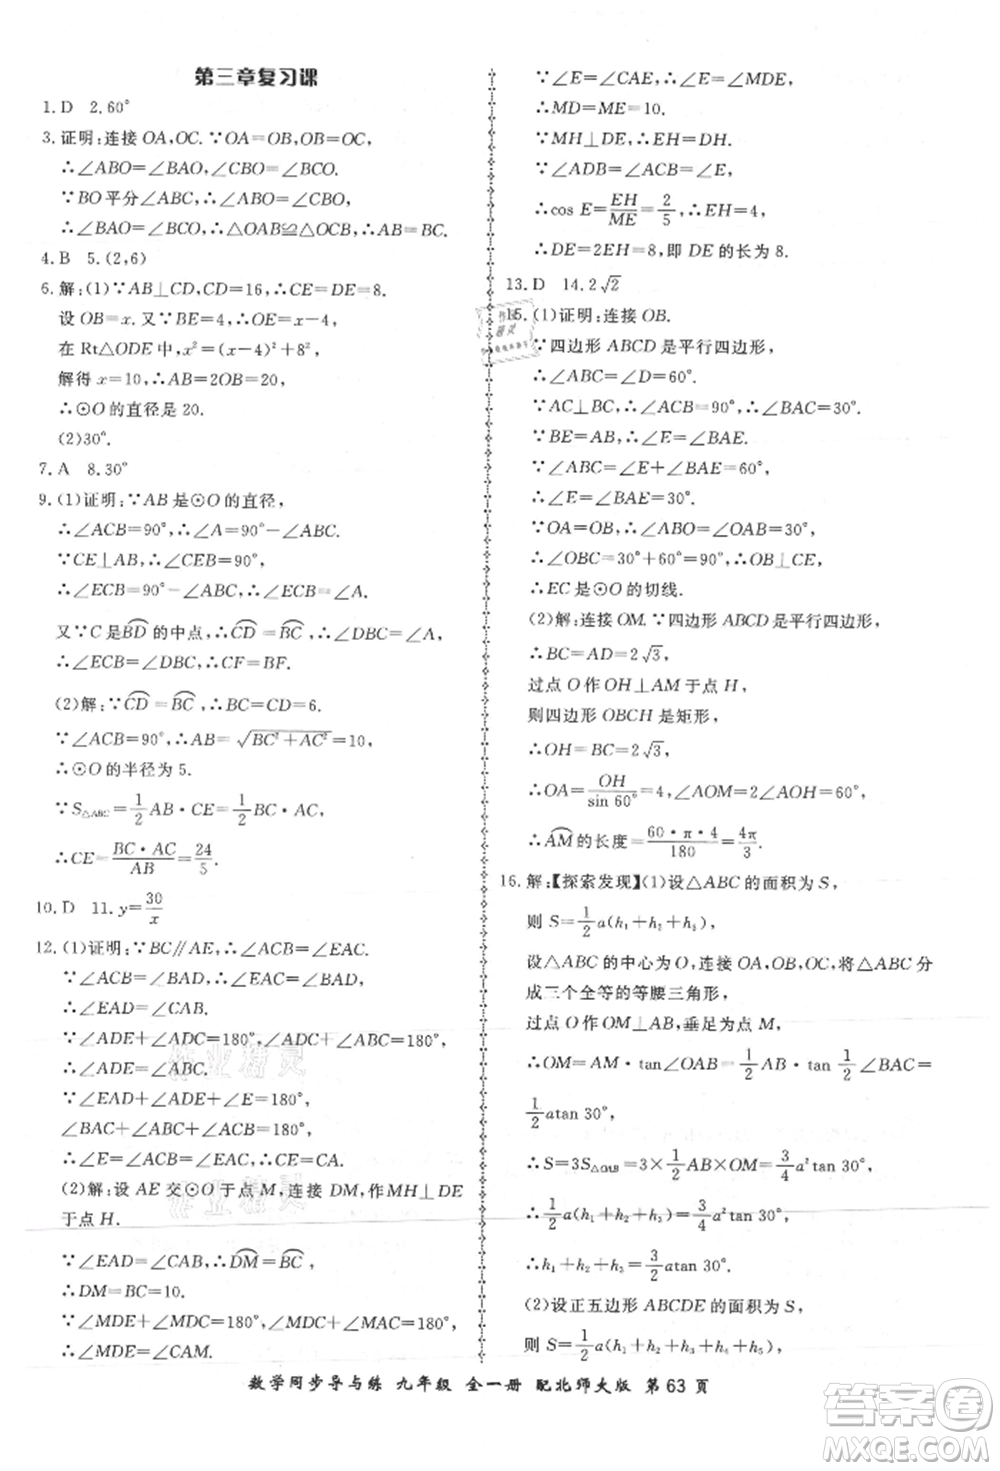 第三章复习课
1. D　2. 60°
3. 证明:连接 OA,OC. ∵OA=OB,OB=OC,
∴∠ABO=∠BAO,∠CBO=∠BCO.
∵BO 平分∠ABC,∴∠ABO=∠CBO,
∴∠BAO=∠BCO,∴△OAB≌△OCB,∴AB=BC.
4. B　5. (2,6)
6. 解:(1)∵AB⊥CD,CD=16,∴CE=DE=8.
设 OB=x. 又∵BE=4,∴OE=x−4,
在 Rt△ODE 中,x²=(x−4)²+8²,
解得 x=10,∴AB=2OB=20,
∴⊙O 的直径是 20.
(2)30°.
7. A　8. 30°
9. (1)证明:∵AB 是⊙O 的直径,
∴∠ACB=90°,∴∠A=90°−∠ABC.
∵CE⊥AB,∴∠CEB=90°,
∴∠ECB=90°−∠ABC,∴∠ECB=∠A.
又∵C 是BD⌒的中点,∴CD⌒=BC⌒,∴∠DBC=∠A,
∴∠ECB=∠DBC,∴CF=BF.
(2)解:∵CD⌒=BC⌒,∴BC=CD=6.
∵∠ACB=90°,∴AB=√(BC²+AC²)=10,
∴⊙O 的半径为 5.
∵S△ABC=1/2 AB·CE=1/2 BC·AC,
∴CE=BC·AC/AB=24/5.
10. D　11. y=30/x
12. (1)证明:∵BC∥AE,∴∠ACB=∠EAC.
∵∠ACB=∠BAD,∴∠EAC=∠BAD,
∴∠EAD=∠BAC.
∵∠ADE+∠ADC=180°,∠ABC+∠ADC=180°,
∴∠ADE=∠ABC.
∵∠EAD+∠ADE+∠E=180°,
∠BAC+∠ABC+∠ACB=180°,
∴∠E=∠ACB=∠EAC,∴CE=CA.
(2)解:设 AE 交⊙O 于点 M,连接 DM,作 MH⊥DE
于点 H.
∵∠EAD=∠BAC,∴DM⌒=BC⌒,
∴DM=BC=10.
∵∠MDE+∠MDC=180°,∠MAC+∠MDC=180°,
∴∠MDE=∠CAM.
∵∠E=∠CAE,∴∠E=∠MDE,
∴MD=ME=10.
∵MH⊥DE,∴EH=DH.
∵∠ADB=∠ACB=∠BAD=∠E,
∴cos E=EH/ME=2/5,∴EH=4,
∴DE=2EH=8,即 DE 的长为 8.
13. D　14. 2√2
15. (1)证明:连接 OB.
∵四边形 ABCD 是平行四边形,
∴∠ABC=∠D=60°.
∵AC⊥BC,∴∠ACB=90°,∴∠BAC=30°.
∵BE=AB,∴∠E=∠BAE.
∵∠ABC=∠E+∠BAE=60°,
∴∠E=∠BAE=30°.
∵OA=OB,∴∠ABO=∠OAB=30°,
∴∠OBC=30°+60°=90°,∴OB⊥CE,
∴EC 是⊙O 的切线.
(2)解:连接 OM. ∵四边形 ABCD 是平行四边形,
∴BC=AD=2√3,
过点 O 作 OH⊥AM 于点 H,
则四边形 OBCH 是矩形,
∴OH=BC=2√3,
∴OA=OH/sin 60°=4,∠AOM=2∠AOH=60°,
∴AM⌒的长度=60·π·4/180=4π/3.
16. 解:【探索发现】(1)设△ABC 的面积为 S,
则 S=1/2 a(h₁+h₂+h₃),
设△ABC 的中心为 O,连接 OA,OB,OC,将△ABC 分
成三个全等的等腰三角形,
过点 O 作 OM⊥AB,垂足为点 M,
∴OM=AM·tan∠OAB=1/2 AB·tan 30°=
1/2 atan 30°,
∴S=3S△OAB=3×1/2 AB×OM=3/4 a²tan 30°,
∴1/2 a(h₁+h₂+h₃)=3/4 a²tan 30°,
∴h₁+h₂+h₃=3/2 atan 30°.
(2)设正五边形 ABCDE 的面积为 S,
则 S=1/2 a(h₁+h₂+h₃+h₄+h₅),
数学同步导与练 九年级 全一册 配北师大版 第 63 页
答案卷
MXQE.COM
作业精灵
作业精灵